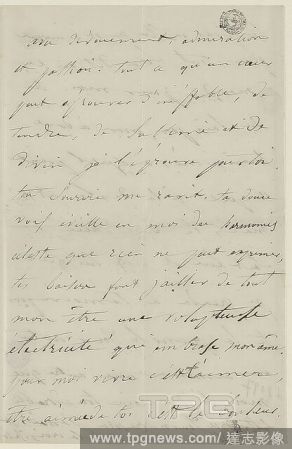 dévouement, admiration
et passion. tout ce qu'un cœur
peut éprouver d'ineffable, de
tendre, de sublime et de
divin je l'éprouve pour toi
ton sourire me ravit. ta douce
voix éveille en moi des harmonies
céleste que rien ne peut exprimer,
tes baisers font jaillir de tout
mon être une voluptueuse
électricité qui embrase mon âme.
pour moi vivre c'est t'aimer,
être aimée de toi c'est le bonheur.
TPG
www.tpgnews.com / 達志影像